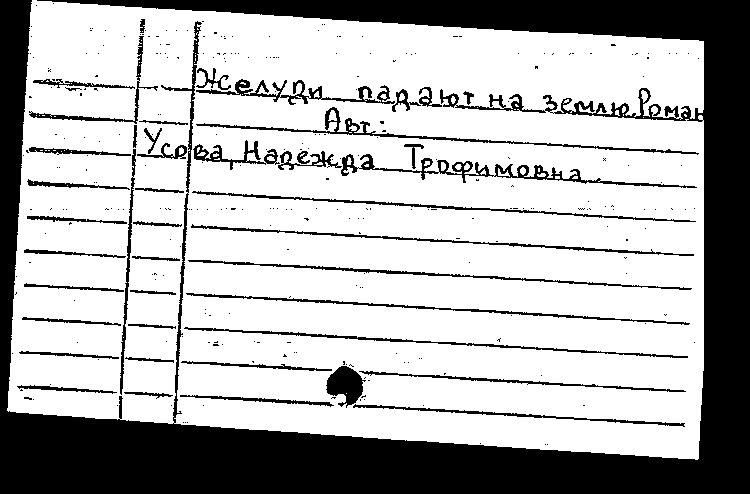 Желуди падают на землю. Роман
Авт:
Усова, Надежда Трофимовна.